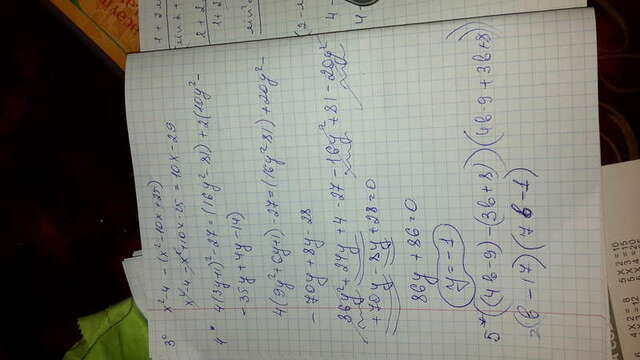 3° x²-4 - (x²-10x+25)
x²-4-x²+10x-25 = 10x-29
4° 4(3y+1)²-27=(16y²-81)+2(10y²-
-35y+4y-14)
4(9y²+6y+1)-27=(16y²-81)+20y²-
-70y+8y-28
36y²+24y+4-27-16y²+81-20y²
+70y-8y+28=0
86y+86=0
y=-1
5* ((4b-9)-(3b+8))(4b-9+3b+8)
=(b-17)(7b-1)
5 x 2 = 10
5 x 3 = 15
5 x 4 = 20
4 x 2 = 8